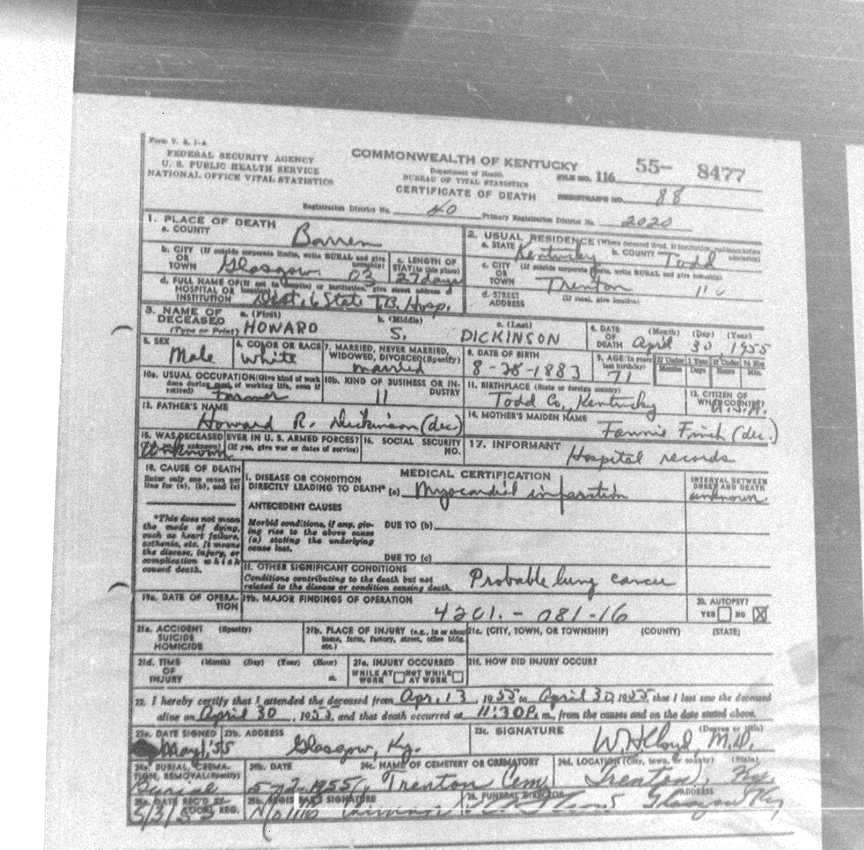 Form V. S. 1-A
FEDERAL SECURITY AGENCY
U. S. PUBLIC HEALTH SERVICE
NATIONAL OFFICE VITAL STATISTICS
COMMONWEALTH OF KENTUCKY
Department of Health
BUREAU OF VITAL STATISTICS
CERTIFICATE OF DEATH
FILE NO. 116 55- 8477
REGISTRAR'S NO. 88
Registration District No. 40 Primary Registration District No. 2020
1. PLACE OF DEATH
a. COUNTY Barren
b. CITY (If outside corporate limits, write RURAL and give township)
OR
TOWN Glasgow 03
c. LENGTH OF STAY (in this place) 27 days
d. FULL NAME OF (If not in hospital or institution, give street address)
HOSPITAL OR
INSTITUTION Dist. 6 State T.B. Hosp.
2. USUAL RESIDENCE (Where deceased lived. If institution, residence before admission)
a. STATE Kentucky b. COUNTY Todd
c. CITY (If outside corporate limits, write RURAL and give township)
OR
TOWN Trenton
d. STREET (If rural, give location)
ADDRESS
3. NAME OF DECEASED (Type or Print)
a. (First) HOWARD
b. (Middle) S.
c. (Last) DICKINSON
4. DATE OF DEATH (Month) (Day) (Year) April 30 1955
5. SEX Male
6. COLOR OR RACE White
7. MARRIED, NEVER MARRIED, WIDOWED, DIVORCED (Specify) married
8. DATE OF BIRTH 8-28-1883
9. AGE (In years last birthday) 71
If Under 1 Year Months Days
If Under 24 Hrs. Hours Min.
10a. USUAL OCCUPATION (Give kind of work done during most of working life, even if retired) Farmer
10b. KIND OF BUSINESS OR INDUSTRY 11
11. BIRTHPLACE (State or foreign country) Todd Co, Kentucky
12. CITIZEN OF WHAT COUNTRY? U.S.A.
13. FATHER'S NAME Howard R. Dickinson (dec)
14. MOTHER'S MAIDEN NAME Fannie Finch (dec.)
15. WAS DECEASED EVER IN U. S. ARMED FORCES?
(If yes, give war or dates of service)
Unknown
16. SOCIAL SECURITY NO.
17. INFORMANT Hospital records
18. CAUSE OF DEATH
Enter only one cause per line for (a), (b), and (c)
MEDICAL CERTIFICATION
INTERVAL BETWEEN ONSET AND DEATH
I. DISEASE OR CONDITION
DIRECTLY LEADING TO DEATH* (a) Myocardial infarction unknown
ANTECEDENT CAUSES
*This does not mean the mode of dying, such as heart failure, asthenia, etc. It means the disease, injury, or complication which caused death.
Morbid conditions, if any, giving rise to the above cause (a) stating the underlying cause last.
DUE TO (b)
DUE TO (c)
II. OTHER SIGNIFICANT CONDITIONS
Conditions contributing to the death but not related to the disease or condition causing death.
Probable lung cancer
19a. DATE OF OPERATION
19b. MAJOR FINDINGS OF OPERATION
4201.-081-16
20. AUTOPSY?
YES NO X
21a. ACCIDENT (Specify)
SUICIDE
HOMICIDE
21b. PLACE OF INJURY (e.g., in or about home, farm, factory, street, office bldg. etc.)
21c. (CITY, TOWN, OR TOWNSHIP) (COUNTY) (STATE)
21d. TIME OF INJURY (Month) (Day) (Year) (Hour) m.
21e. INJURY OCCURRED
WHILE AT WORK NOT WHILE AT WORK
21f. HOW DID INJURY OCCUR?
22. I hereby certify that I attended the deceased from Apr. 13, 1955 to April 30, 1955 that I last saw the deceased
alive on April 30, 1955, and that death occurred at 11:30 P. m., from the causes and on the date stated above.
23a. DATE SIGNED May '55
23b. ADDRESS Glasgow, Ky.
23c. SIGNATURE (Degree or title) M.D.
24a. BURIAL, CREMATION, REMOVAL (Specify) Burial
24b. DATE 1955
24c. NAME OF CEMETERY OR CREMATORY Trenton Cem
24d. LOCATION (City, town, or county) (State) Trenton, Ky.
25a. DATE REC'D BY LOCAL REG. 5/3/55
25b. REGISTRAR'S SIGNATURE
26. FUNERAL DIRECTOR ADDRESS Glasgow Ky